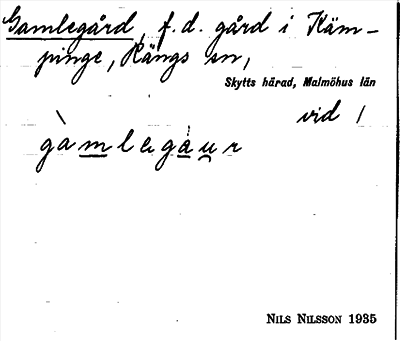 Gamlegård, f.d. gård i Käm-
pinge, Rängs sn,
Skytts härad, Malmöhus län
vid /
gàmlegáu̯r
NILS NILSSON 1935